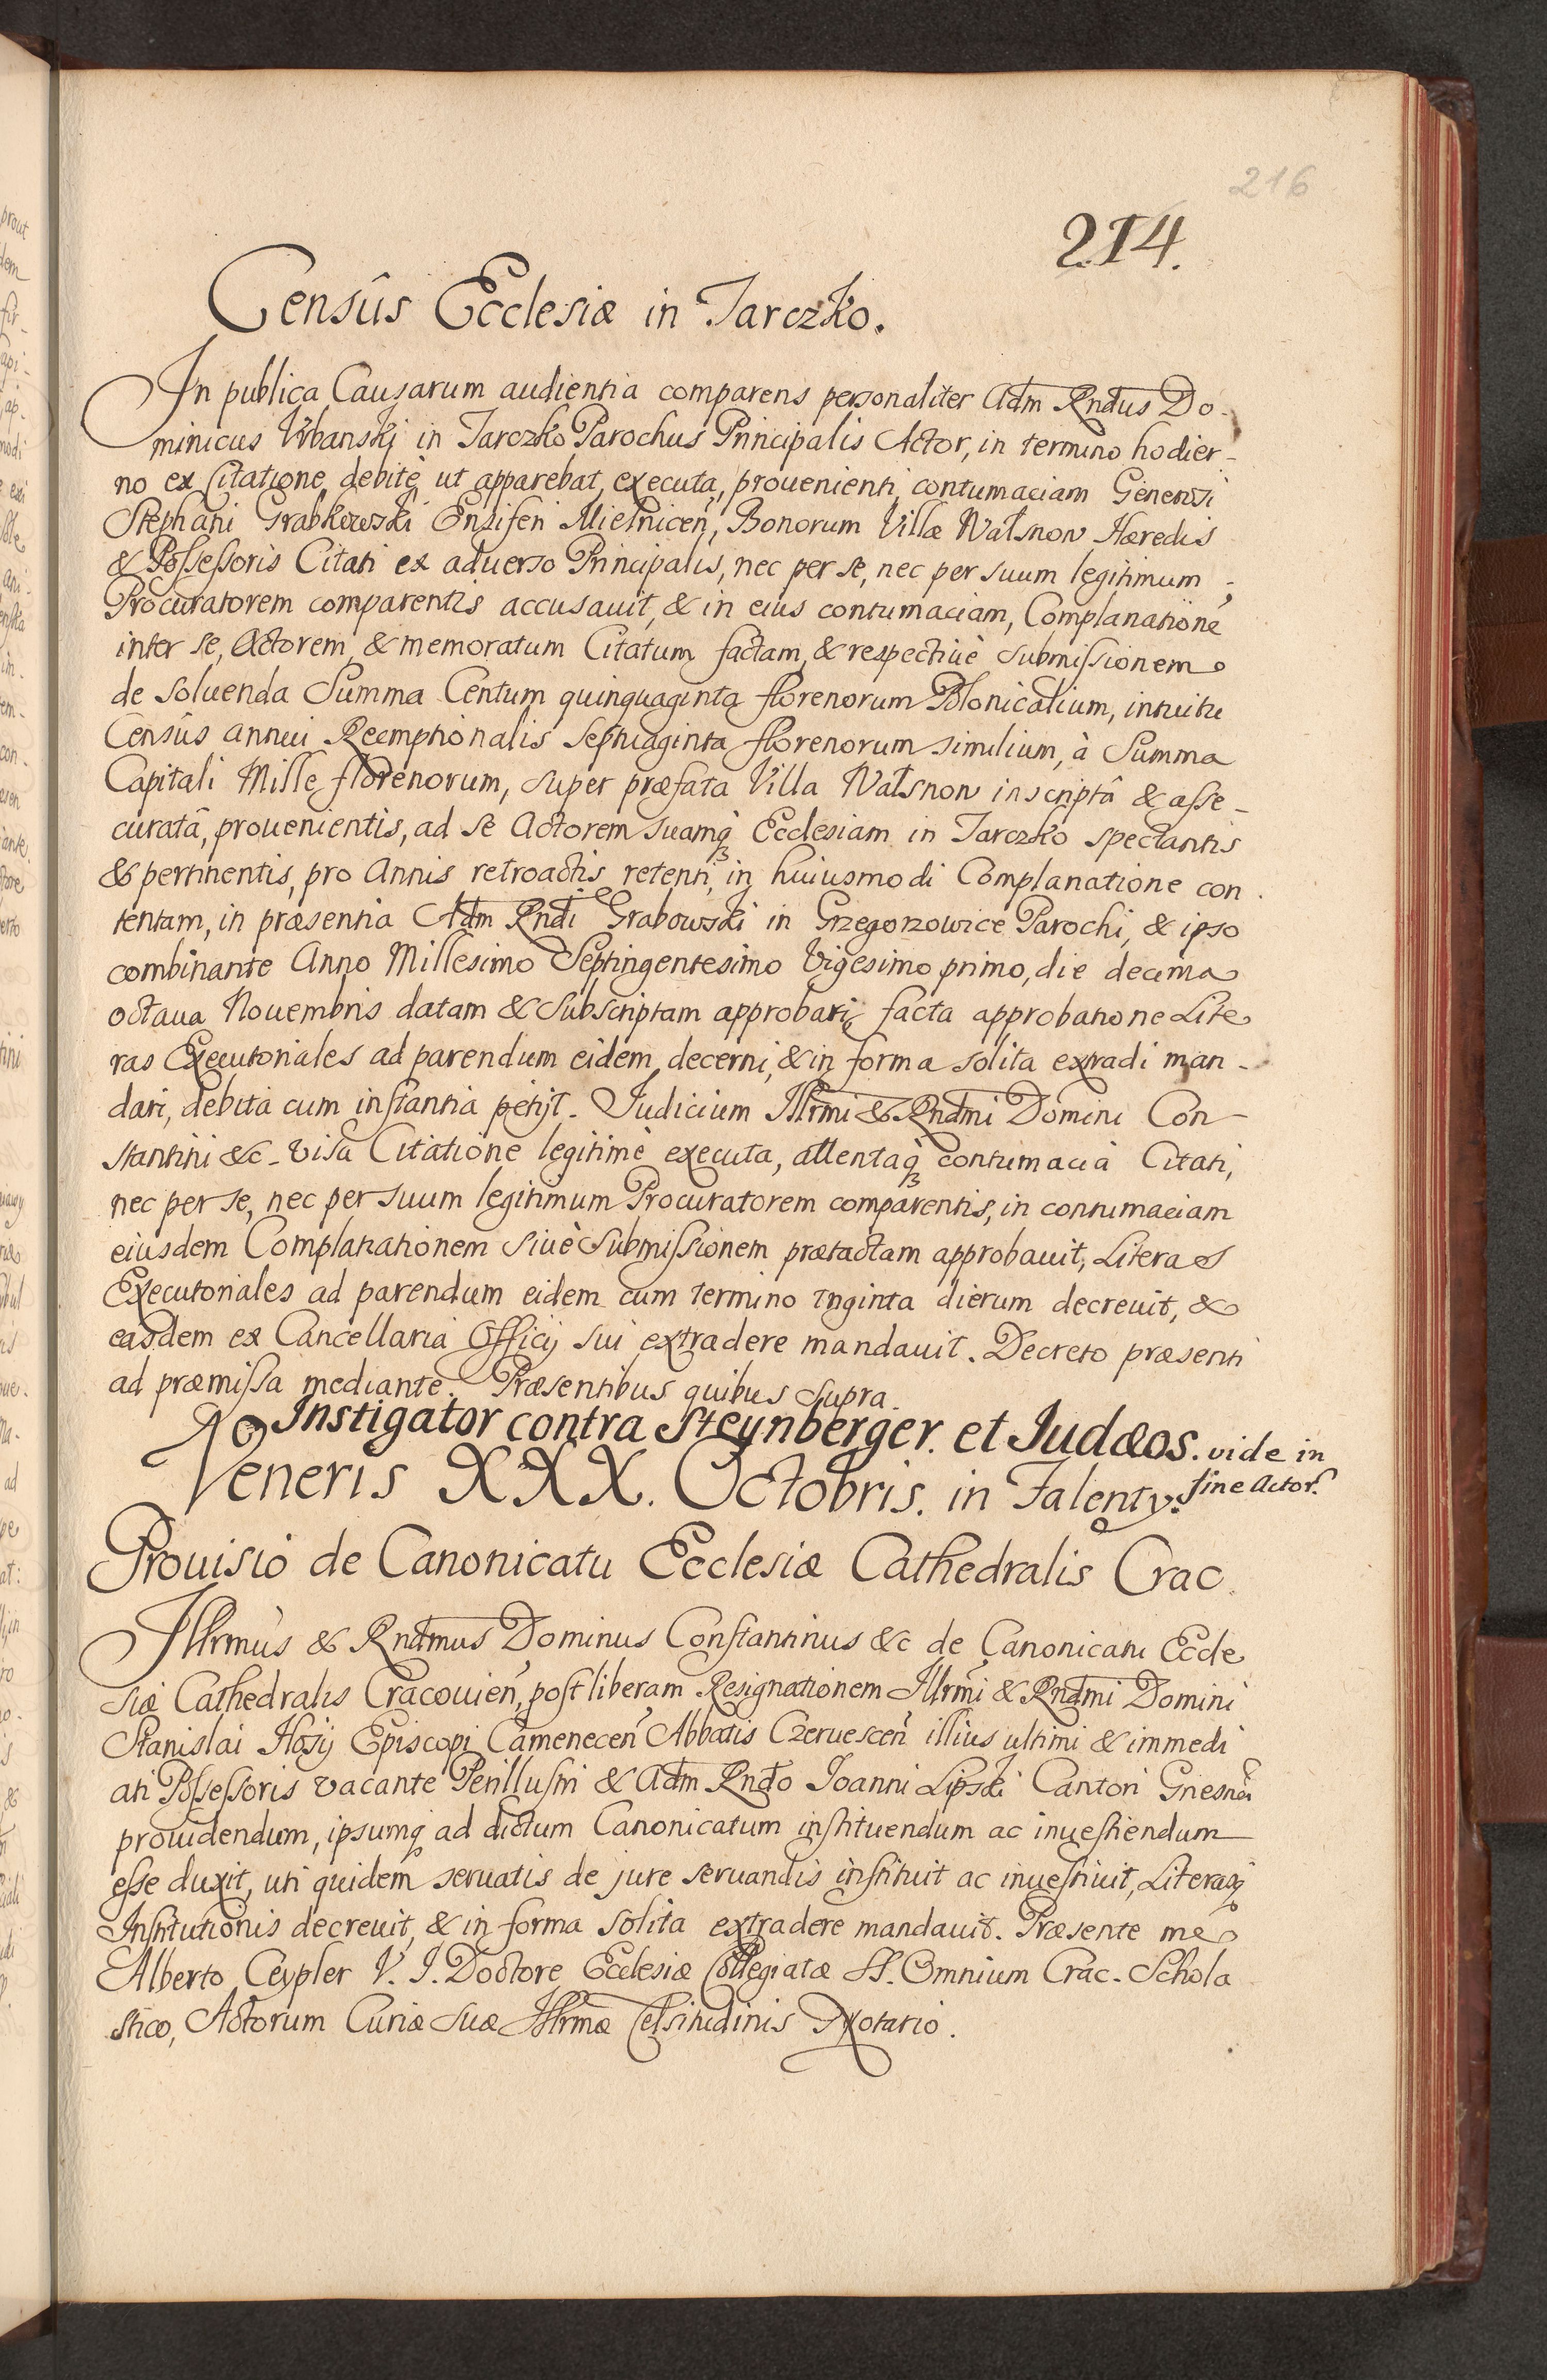 216
214.
Censûs Ecclesiæ in Tarczko.
In publica Causarum audientia comparens personaliter Adm Rndus Do-
minicus Vrbanskj in Tarczko Parochus Principalis Actor, in termino hodier-
no ex Citatione debitè ut apparebat, executa, prouenienti, contumaciam Generosi
Stephani Grabkowski Ensiferi Mielnicen, Bonorum Villæ Watsnow Hæredis
& Possessoris Citati ex aduerso Principalis, nec per se, nec per suum legitimum
Procuratorem comparentis accusauit, & in eius contumaciam, Complanationē
inter se, Actorem, & memoratum Citatum factam, & respectiuè submissionem
de soluenda Summa Centum quinquaginta florenorum Polonicalium, intuitu
Censûs annui Reemptionalis Septuaginta florenorum similium, à Summa
Capitali Mille florenorum, super præfata Villa Watsnow inscriptâ & asse-
curatâ, prouenientis, ad se Actorem suamq Ecclesiam in Tarczko spectantis
& pertinentis, pro Annis retroactis retenti, in huiusmodi Complanatione con
tentam, in præsentia Adm Rndi Grabowski in Grzegorzowice Parochi, & ipso
combinante Anno Millesimo Septingentesimo Vigesimo primo, die decima
octaua Nouembris datam & Subscriptam approbari, facta approbatione Lite
ras Executoriales ad parendum eidem decerni, & in forma solita extradi man-
dari, debita cum instantia petijt. Judicium Illrmi & Rndmi Domini Con-
stantini &c. visa Citatione legitimè executa, attentaq contumacia Citati,
nec per se, nec per suum legitimum Procuratorem comparentis, in contumaciam
eiusdem Complanationem siuè Submissionem prætactam approbauit, Literas
Executoriales ad parendum eidem cum termino triginta dierum decreuit, &
easdem ex Cancellaria Officij sui extradere mandauit. Decreto præsenti
ad præmissa mediante. Præsentibus quibus supra.
Instigator contra Steynberger. et Judæos. vide in
fine Actor.
Veneris XXX. Octobris. in Falenty.
Prouisio de Canonicatu Ecclesiæ Cathedralis Crac.
Illrmus & Rndmus Dominus Constantinus &c de Canonicatu Eccle
siæ Cathedralis Cracouien, post liberam Resignationem Illrmi & Rndmi Domini
Stanislai Hosij Episcopi Camenecen Abbatis Czeruescen illius ultimi & immedi
ati Possessoris vacante Perillustri & Adm Rndo Joanni Lipski Cantori Gnesnen
prouidendum, ipsumq ad dictum Canonicatum instituendum ac inuestiendum
esse duxit, uti quidem seruatis de jure seruandis instituit ac inuestiuit, Literasq
Institutionis decreuit, & in forma solita extradere mandauit. Præsente me
Alberto Ceypler V. J. Doctore Ecclesiæ Collegiatæ SS. Omnium Crac. Schola
stico, Actorum Curiæ Suæ Illrmæ Celsitudinis Notario.